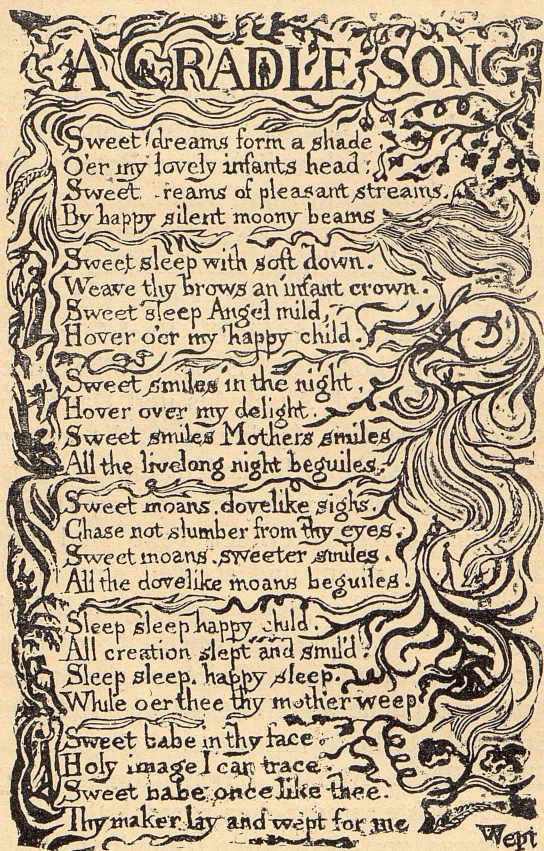 A CRADLE SONG
Sweet dreams form a shade
O'er my lovely infants head.
Sweet reams of pleasant streams,
By happy silent moony beams
Sweet sleep with soft down.
Weave thy brows an infant crown.
Sweet sleep Angel mild,
Hover o'er my happy child.
Sweet smiles in the night,
Hover over my delight.
Sweet smiles Mothers smiles
All the livelong night beguiles.
Sweet moans, dovelike sighs,
Chase not slumber from thy eyes.
Sweet moans, sweeter smiles.
All the dovelike moans beguiles.
Sleep sleep happy child.
All creation slept and smil'd
Sleep sleep, happy sleep.
While o'er thee thy mother weep
Sweet babe in thy face
Holy image I can trace.
Sweet babe once like thee.
Thy maker lay and wept for me
Wept